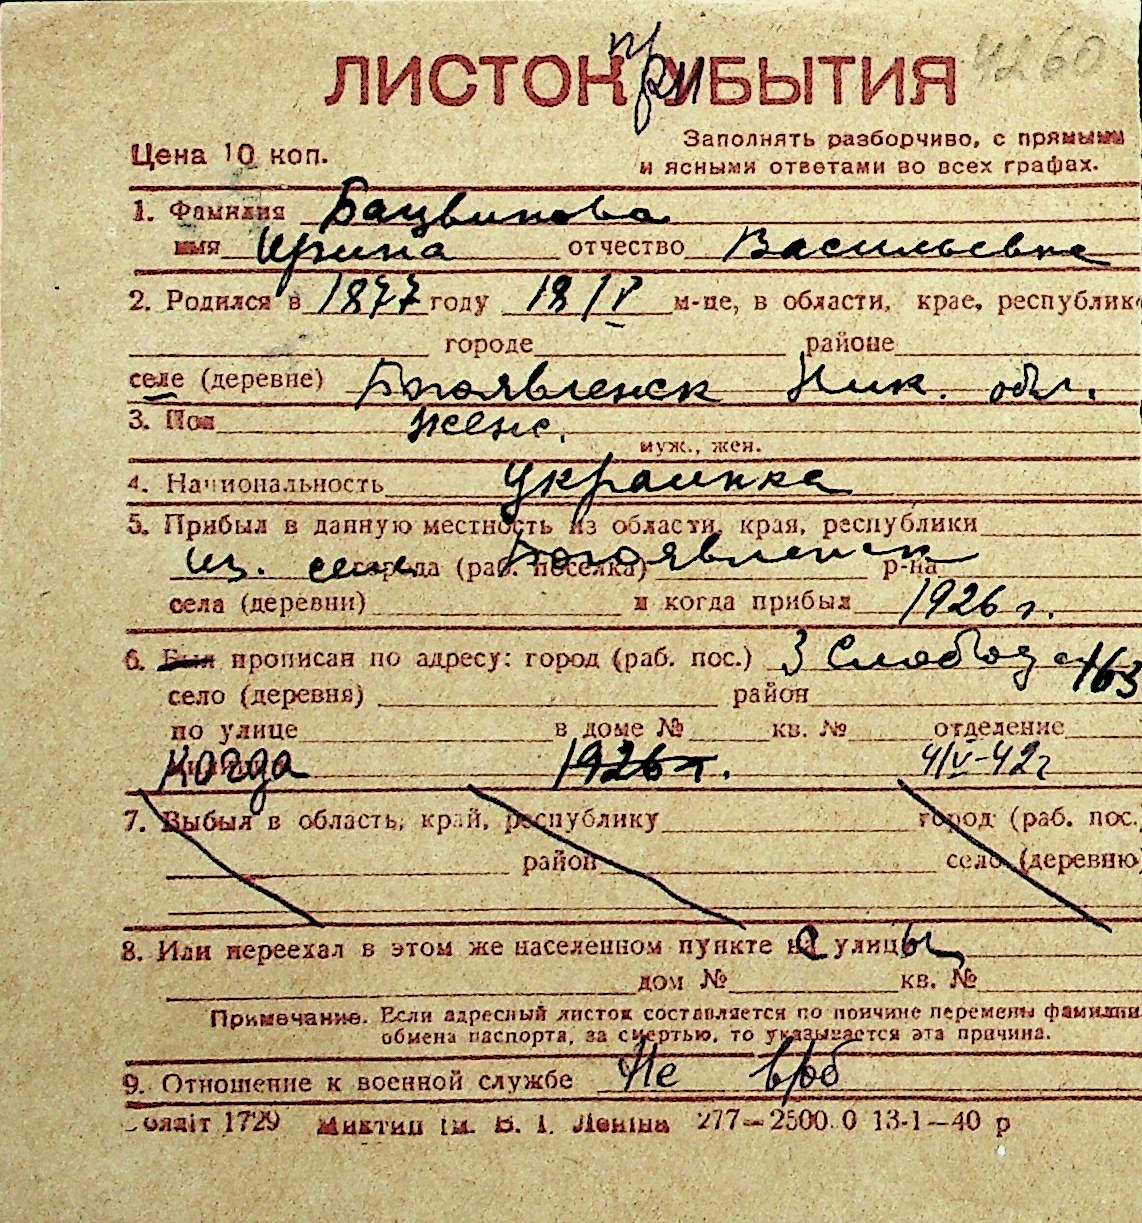 4260
ЛИСТОК ПРИБЫТИЯ
Цена 10 коп.
Заполнять разборчиво, с прямыми
и ясными ответами во всех графах.
1. Фамилия Бацвинова
имя Ирина отчество Васильевна
2. Родился в 1877 году 18/IV м-це, в области, крае, республике
городе районе
селе (деревне) Богоявленск Ник. обл.
3. Пол женс.
муж., жен.
4. Национальность украинка
5. Прибыл в данную местность из области, края, республики
из села города (раб. поселка) Богоявленск р-на
села (деревни) и когда прибыл 1926 г.
6. Был прописан по адресу: город (раб. пос.) 3 Слободск 163
село (деревня) район
по улице в доме № кв. № отделение
Когда 1926 г. 4/V-42 г
7. Выбыл в область, край, республику город (раб. пос.)
район село (деревню)
8. Или переехал в этом же населенном пункте с улицы
дом № кв. №
Примечание. Если адресный листок составляется по причине перемены фамилии,
обмена паспорта, за смертью, то указывается эта причина.
9. Отношение к военной службе Не в/об
1729 Миктип ім. В. І. Леніна 277—2500.0 13-1—40 р